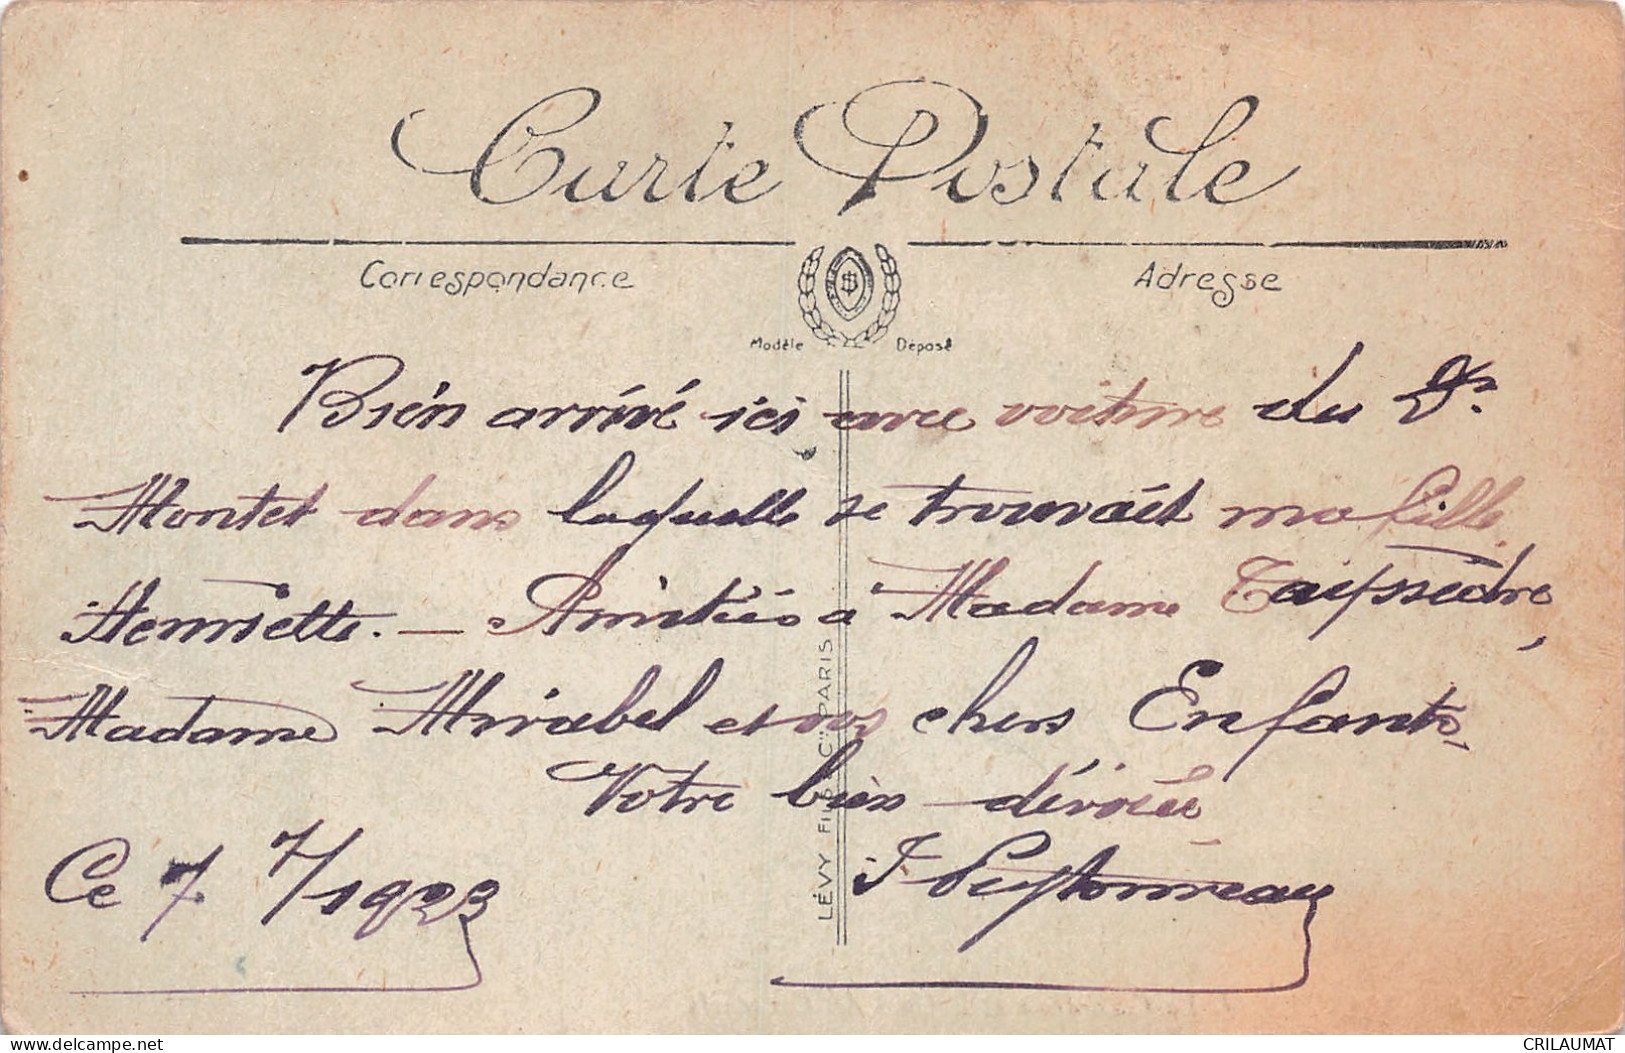 Carte Postale
Correspondance
Adresse
Modèle Déposé
Bien arrivé ici avec voiture du Dr.
Montet dans laquelle se trouvait ma fille
Henriette. — Amitiés à Madame
Madame Mirabel et vos chers Enfants
Votre bien dévoué
Ce 7 7/1923
LÉVY FILS & Cie PARIS
www.delcampe.net
CRILAUMAT